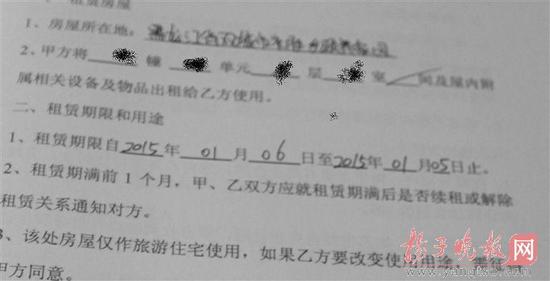 一、租赁房屋
1、房屋所在地:
2、甲方将 幢 单元 层 室 间及屋内附
属相关设备及物品出租给乙方使用。
二、租赁期限和用途
1、租赁期限自2015年 01 月 06 日至2015年 01 月05日止。
2、租赁期满前 1 个月，甲、乙双方应就租赁期满后是否续租或解除
租赁关系通知对方。
3、该处房屋仅作旅游住宅使用，如果乙方要改变使用用途，需征得
甲方同意。
扬子晚报网
www.yangtse.com